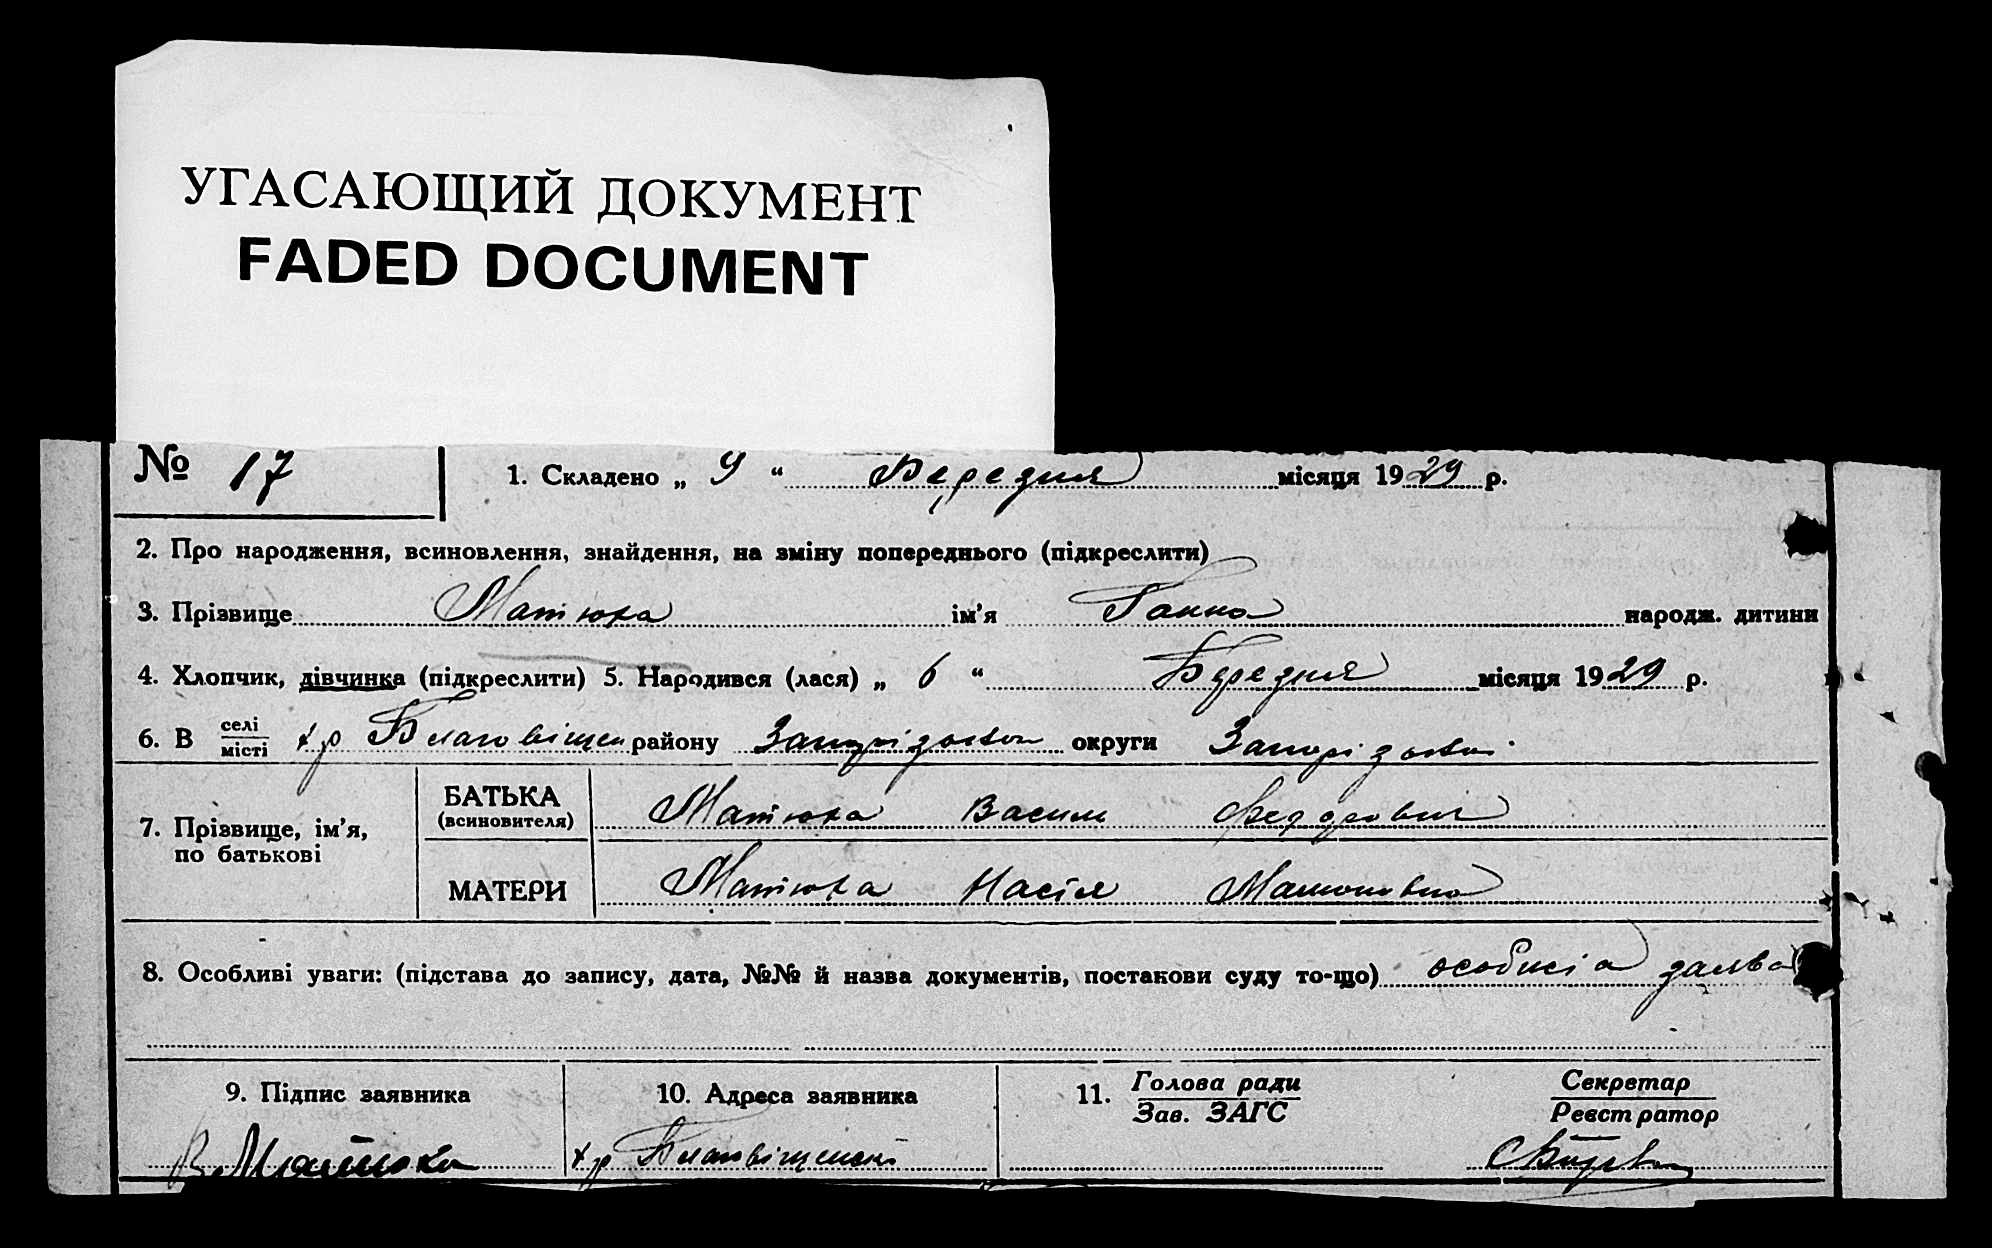 УГАСАЮЩИЙ ДОКУМЕНТ
FADED DOCUMENT
№ 17
1. Складено „ 9 “ Березня місяця 1929 р.
2. Про народження, всиновлення, знайдення, на зміну попереднього (підкреслити)
3. Прізвище Матюха ім’я Ганна народж. дитини
4. Хлопчик, дівчинка (підкреслити) 5. Народився (лася) „ 6 “ Березня місяця 1929 р.
6. В селі місті х р Благовіщен району Запорізької округи Запорізької
7. Прізвище, ім’я, по батькові
БАТЬКА (всиновителя) Матюха Василь Федорович
МАТЕРИ Матюха Настя
8. Особливі уваги: (підстава до запису, дата, №№ й назва документів, постанови суду то-що) особиста заява
9. Підпис заявника
10. Адреса заявника
11. Голова ради Зав. ЗАГС
Секретар Реєстратор
В. Матюха
х р Благовіщенскі